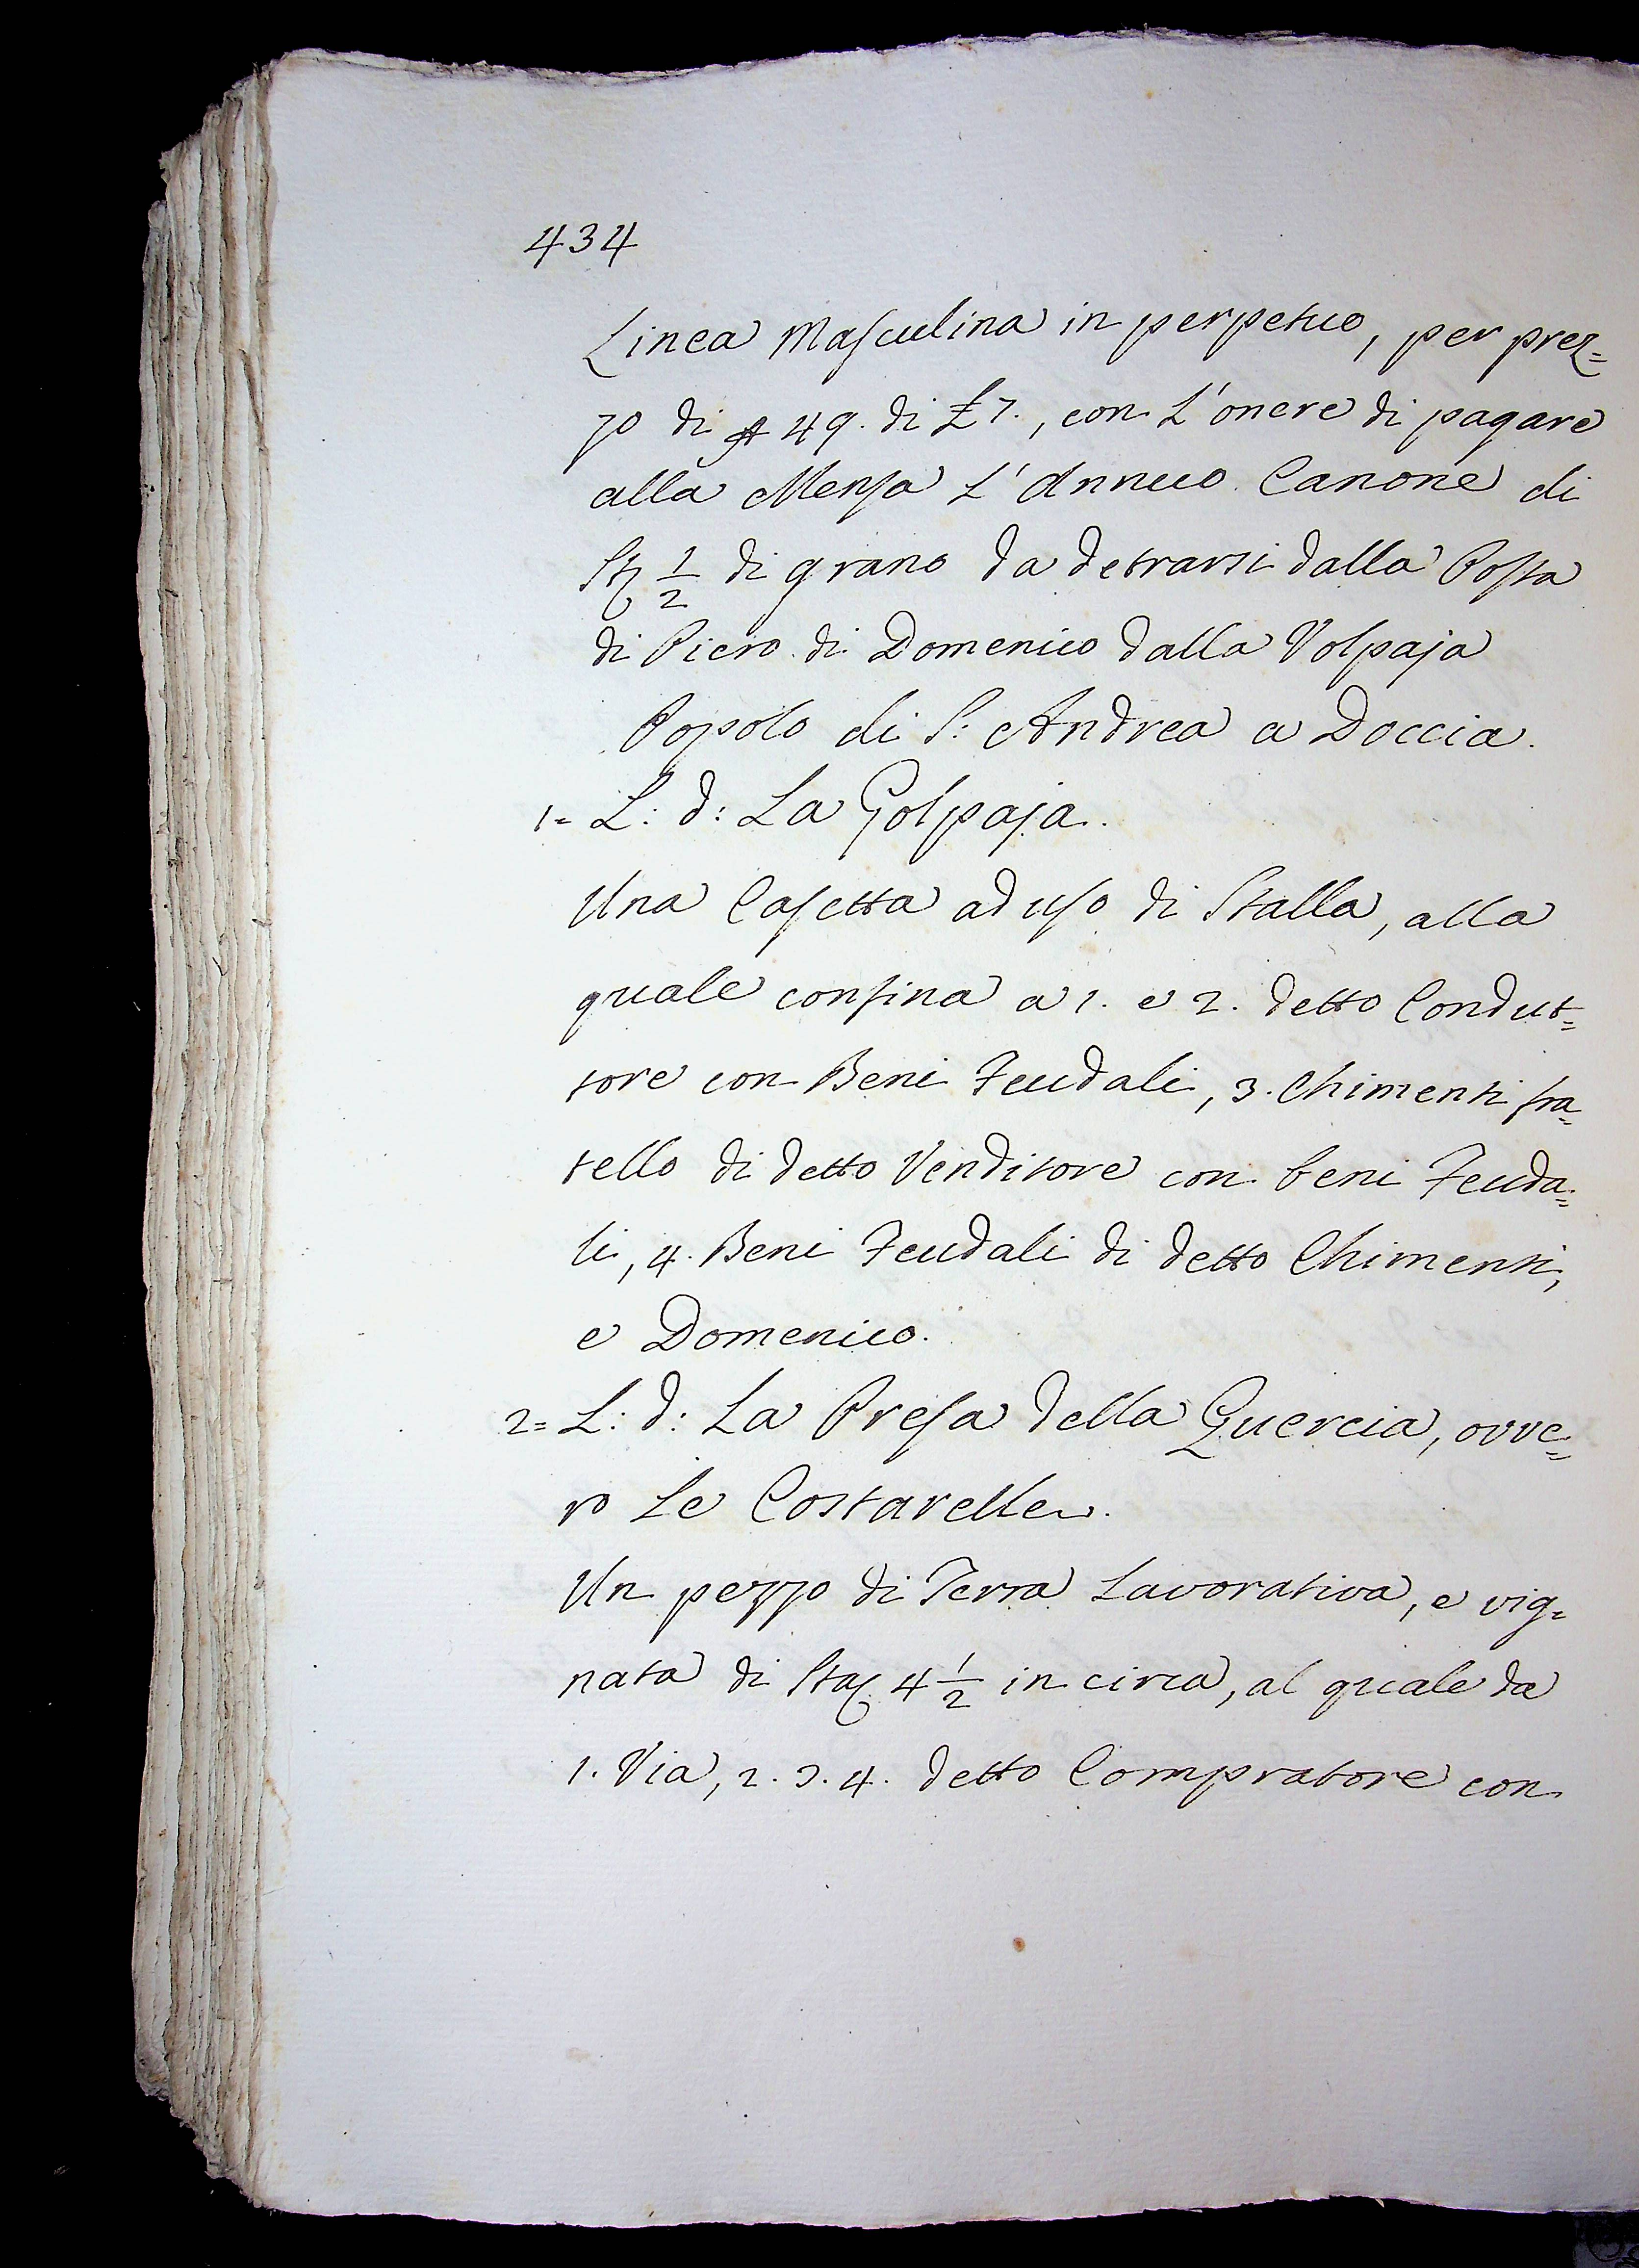 434
Linea Masculina in perpetuo, per prez=
zo di 49. di £ 7., con L'onere di pagare
alla Mensa L'Annuo Canone di
St 1/2 di grano da detrarsi dalla Posta
di Piero di Domenico dalla Volpaja
Popolo di S: Andrea a Doccia.
1= L: d: La Golpaja.
Una Casetta ad uso di Stalla, alla
quale confina a 1. e 2. detto Condut=
tore con Beni Feudali, 3. Chimenti fra=
tello di detto Venditore con beni Feuda=
li, 4. Beni Feudali di detto Chimenti,
e Domenico.
2= L: d: La Presa della Quercia, ovve=
ro Le Costarelle.
Un pezzo di Terra Lavorativa, e vig=
nata di Sta 4 1/2 in circa, al quale da
1. Via, 2. 3. 4. detto Compratore con